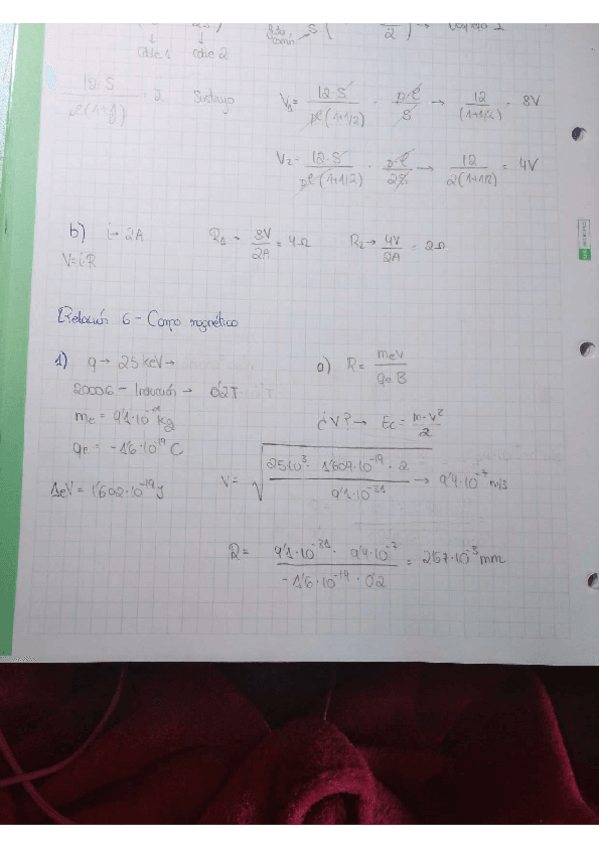 cable 1 cable 2
12·S / ρℓ(1+1/2) = 2 Sustituyo V₁ = 12·S / ρℓ(1+1/2) · ρ·ℓ / S → 12 / (1+1/2) = 8V
V₂ = 12·S / ρℓ(1+1/2) · ρ·ℓ / 2S → 12 / 2(1+1/2) = 4V
b) i → 2A R₁ = 8V / 2A = 4Ω R₂ → 4V / 2A = 2Ω
V=i·R
Relación 6 - Campo magnético
1) q → 25 keV → a) R = me·v / qe·B
2000G - Inducción → 0'2T
me = 9'1·10⁻³¹ kg ¿V? → Ec = m·v² / 2
qe = -1'6·10⁻¹⁹ C
1eV = 1'602·10⁻¹⁹ J V = √(25·10³ · 1'602·10⁻¹⁹ · 2 / 9'1·10⁻³¹) → 9'4·10⁻⁷ m/s
R = 9'1·10⁻³¹ · 9'4·10⁻⁷ / -1'6·10⁻¹⁹ · 0'2 = 2'67·10⁻³ mm